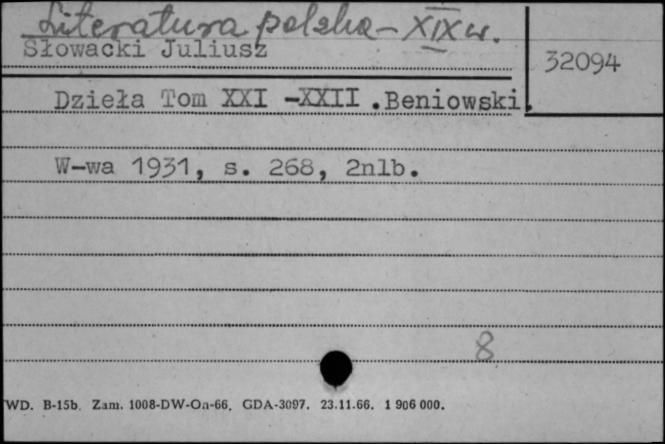 Literatura polska - XIX w.
Słowacki Juliusz
32094
Dzieła Tom XXI -XXII .Beniowski.
W-wa 1931, s. 268, 2nlb.
8
WD. B-15b. Zam. 1008-DW-On-66. GDA-3097. 23.11.66. 1 906 000.